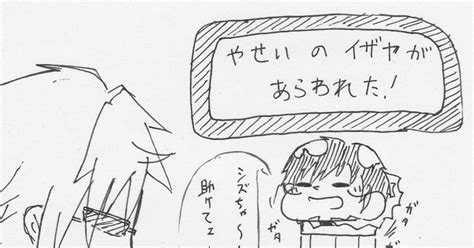 やせい の イザヤが
あらわれた!
シズちゃ〜
助けてェ
ガタ
ガタ